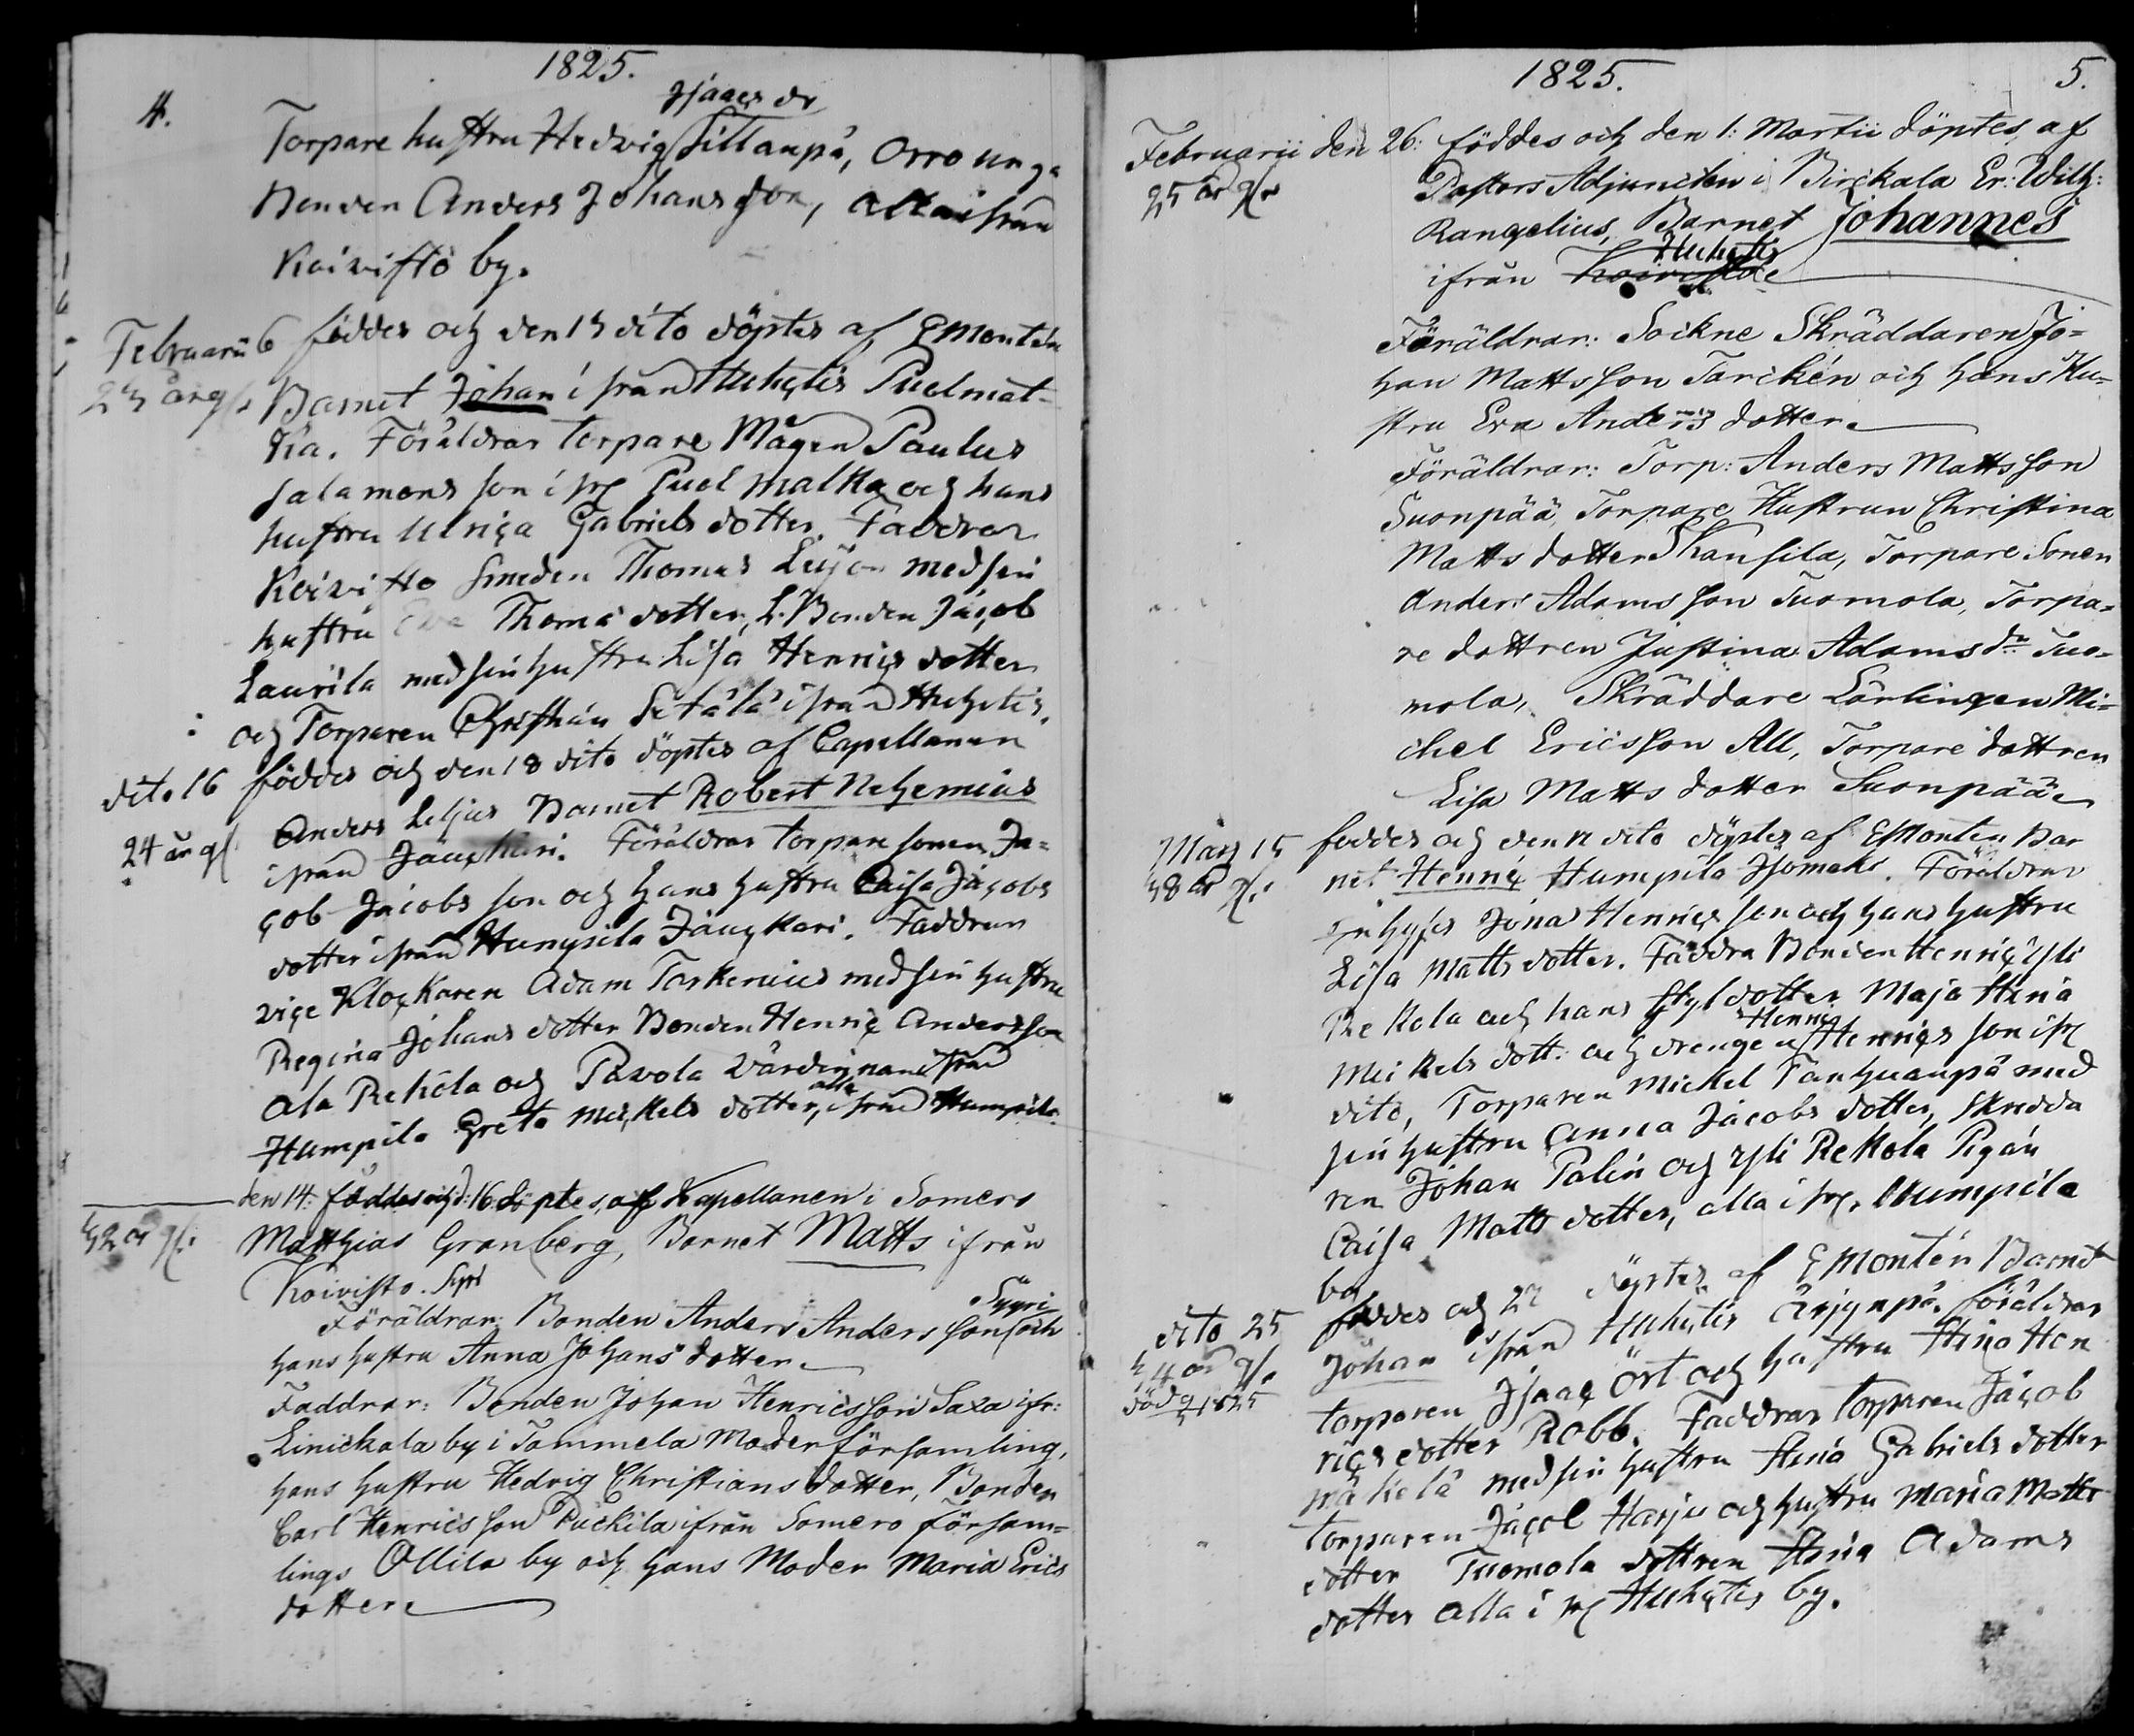 1825.
4.
Isaacs dr
Torpare hustru Hedvig Sillanpä, Orro unga
Bonden Anders Johansson, alla ifrån
Koivistö by.
Februarii 6 föddes och den 13 dito döptes af E Montén
23 år gl. Barnet Johan ifrån Huhtis Puolmat-
ka. Föräldrar torpare Mågen Paulus
Salamons son ifr Puol matka och hans
hustru Ulrica Gabriels dotter. Faddrar
Koivisto Smeden Thomas Leijon med sin
hustru Eva Thoma dotter, L. Bonden Jacob
Laurila med sin hustru Lisa Henrics dotter
och Torparen Christian Setälä ifrån Huhtis.
dito 16 föddes och den 18 dito döptes af Capellanen
Anders Leljus Barnet Robert Nehemias
24 år gl ifrån Jänhkari. Föräldrar torpare sonen Ja-
cob Jacobs son och hans hustru Caisa Jacobs
dotter ifrån Humpila Jänhkari. Faddrar
vice Klockaren Adam Torkenius med sin hustru
Regina Johans dotter Bonden Henric Andersson
Ala Rekola och Pavola Värdinnan ifrån
Humpila Greta Mickels dotter, alla ifrån Humpila.
den 14: föddes och d: 16 döptes, af Kapellanen i Somero
32 år gl. Matthias Granberg, Barnet Matts ifrån
Koivisto. Syri
Föräldrar: Bonden Anders Anders son Syyri och
hans hustru Anna Johans dotter.
Faddrar: Bonden Johan Henricsson Saxa ifr:
Linickala by i Tammela Moderförsamling,
hans hustru Hedvig Christians dotter, Bonden
Carl Henrics son Puckila ifrån Somero försam-
lings Ollila by och hans Moder Maria Erics
dotter
1825.
5.
Februarii den 26: föddes och den 1: Martii döptes, af
25 år gl. Pastors Adjuncten i Birckala Er: Wilh:
Rangelius, Barnet Johannes
ifrån Koivistoe Huhtis
Föräldrar: Sockne Skräddaren Jo-
han Matts son Tarckén och hans Hu-
stru Eva Anders dotter.
Föräldrar: Torp: Anders Matts son
Suonpää, Torpare Hustrun Christina
Matts dotter Kansila, Torpare Sonen
Anders Adams son Tuomola, Torpa-
re dottren Justina Adams dr Tuo-
mola, Skräddare Lärlingen Mi-
chel Ericsson All, Torpare dottren
Lisa Matts dotter Suonpää
Mars 15 föddes och den 17 dito döptes af E Montén Bar
38 år gl. net Henric Humpila Isomaki. Föräldrar
Inhyses Jona Henrics son och hans hustru
Lisa Matts dotter. Faddra Bonden Henric Yli
Rekola och hans Styfdotter Maja Stina
Mickels dott: och drengen Henric Henrics son ifr
dito, Torparen Mickel Tanhuanpä med
sin hustru Anna Jacobs dotter, Skredda
ren Johan Palin och Yli Rekola Pigan
Caisa Matts dotter, alla ifr. Humpila
by
dito 25 föddes och 27 döptes af E Montén Barnet
34 år gl. Johan ifrån Huhtis Ärjynpä. föräldrar
död 1825 torparen Isaac Ört och hustru Stina Hen
rics dotter Robb. Faddrar torparen Jacob
mäkelä med sin hustru Stina Gabriels dotter
torparen Jacob Harju och hustru Maria Matts
dotter Tuomola dottren Stina Adams
dotter alla ifr Huhtis by.